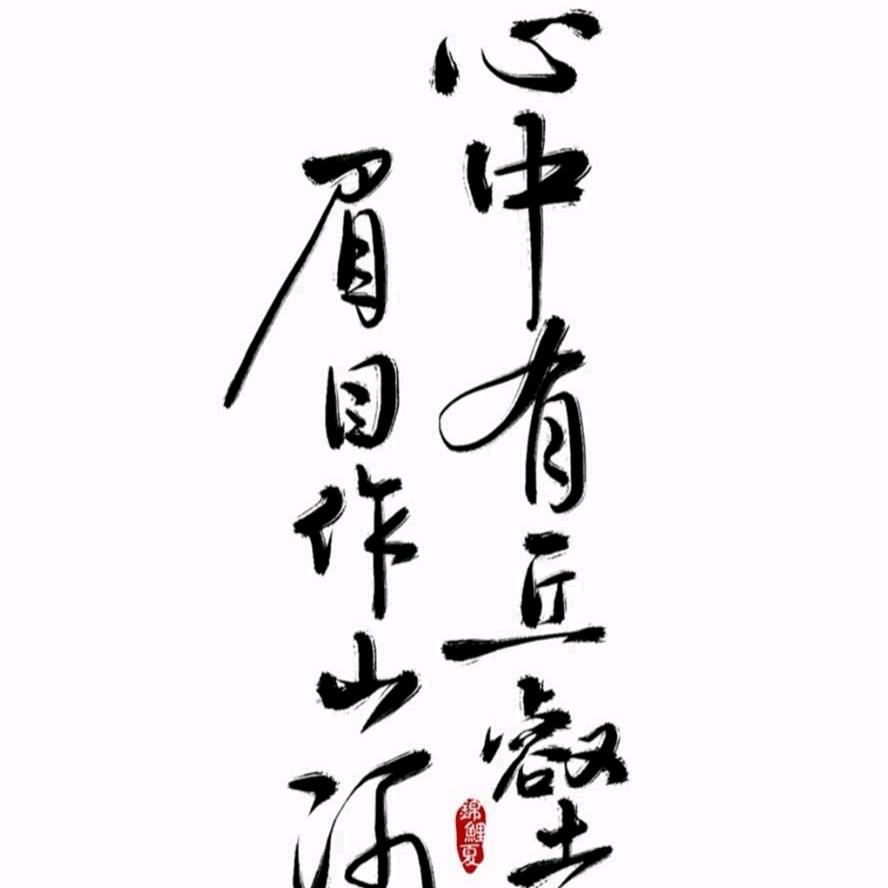 心中有丘壑
眉目作山河
錦鯉夏